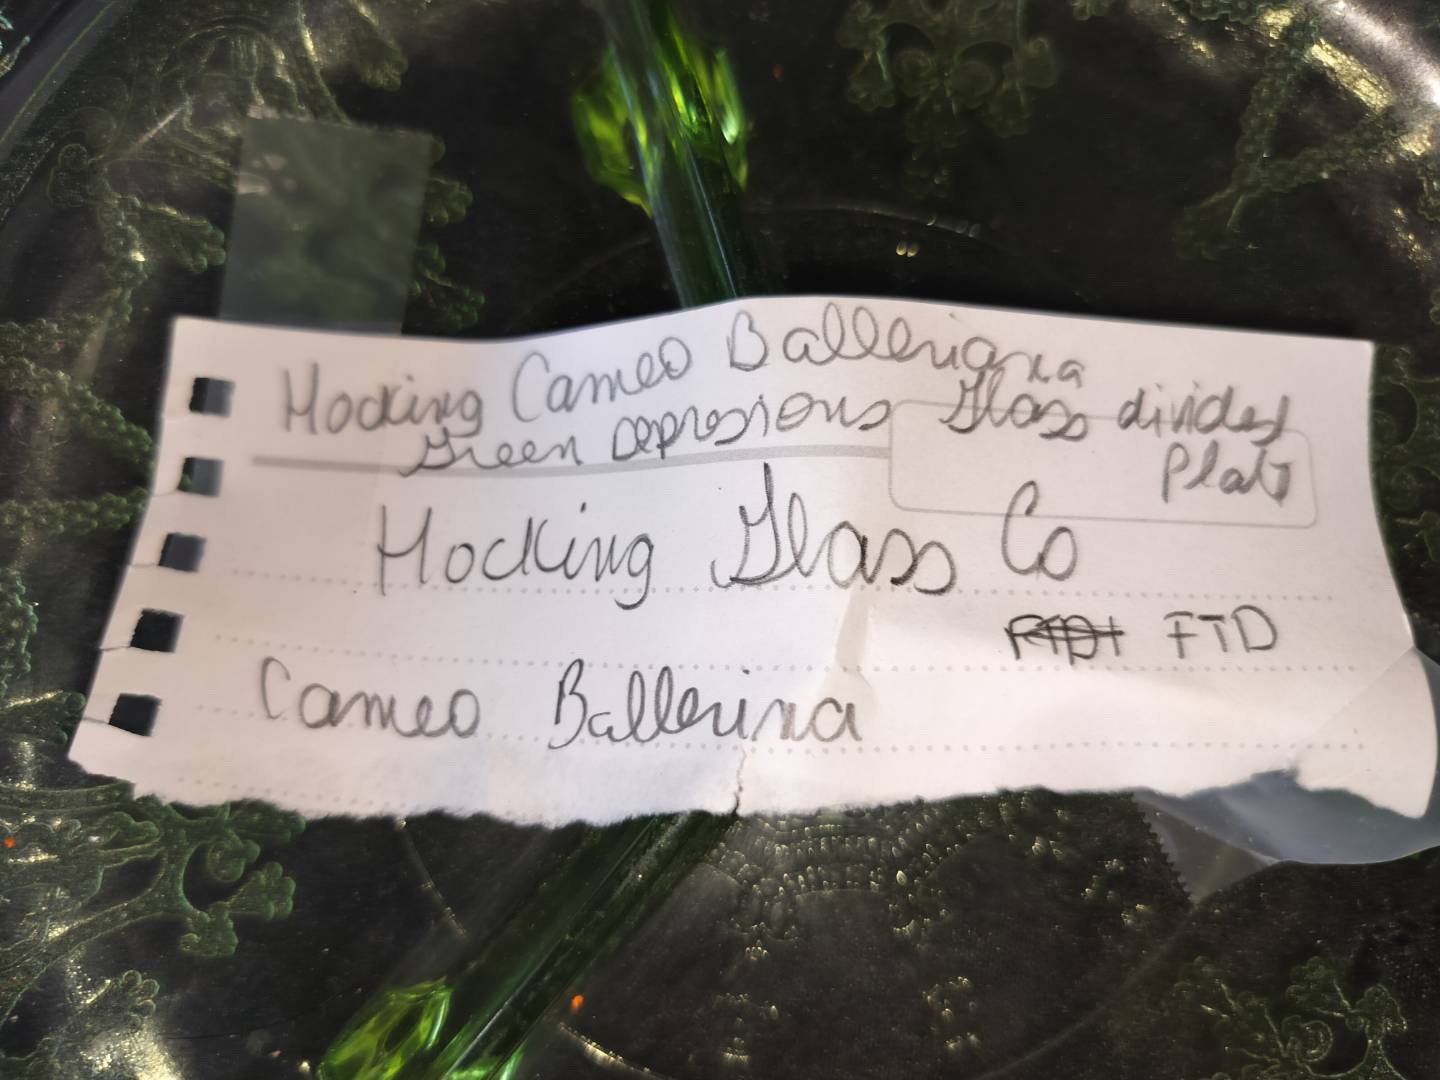 Hocking Cameo Ballerianna
Green Depresions Glass divided
Plat
Hocking Glass Co
FTD
Cameo Ballerina